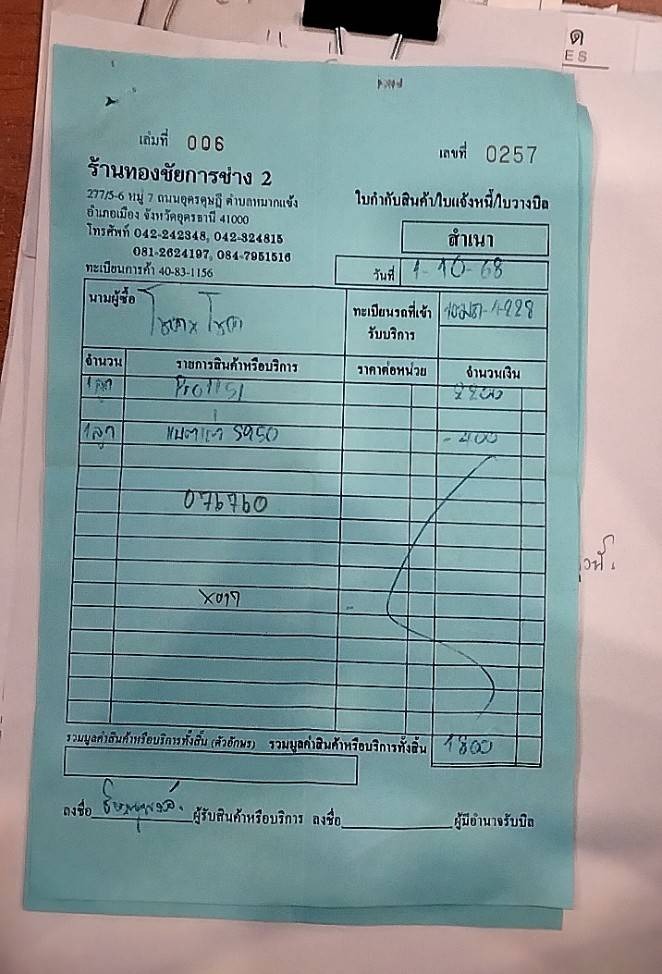 ด
ES
เล่มที่ 006
เลขที่ 0257
ร้านทองชัยการช่าง 2
277/5-6 หมู่ 7 ถนนอุดรดุษฎี ตำบลหมากแข้ง
อำเภอเมือง จังหวัดอุดรธานี 41000
โทรศัพท์ 042-242348, 042-324815
081-2624197, 084-7951516
ทะเบียนการค้า 40-83-1156
ใบกำกับสินค้า/ใบแจ้งหนี้/ใบวางบิล
สำเนา
วันที่ 1-10-68
นามผู้ซื้อ
ทะเบียนรถที่เข้ารับบริการ
จำนวน รายการสินค้าหรือบริการ ราคาต่อหน่วย จำนวนเงิน
1ลูก 2200
1ลูก แบตเก่า -400
076760
รวมมูลค่าสินค้าหรือบริการทั้งสิ้น (ตัวอักษร) รวมมูลค่าสินค้าหรือบริการทั้งสิ้น 1800
ลงชื่อ ผู้รับสินค้าหรือบริการ ลงชื่อ ผู้มีอำนาจรับบิล